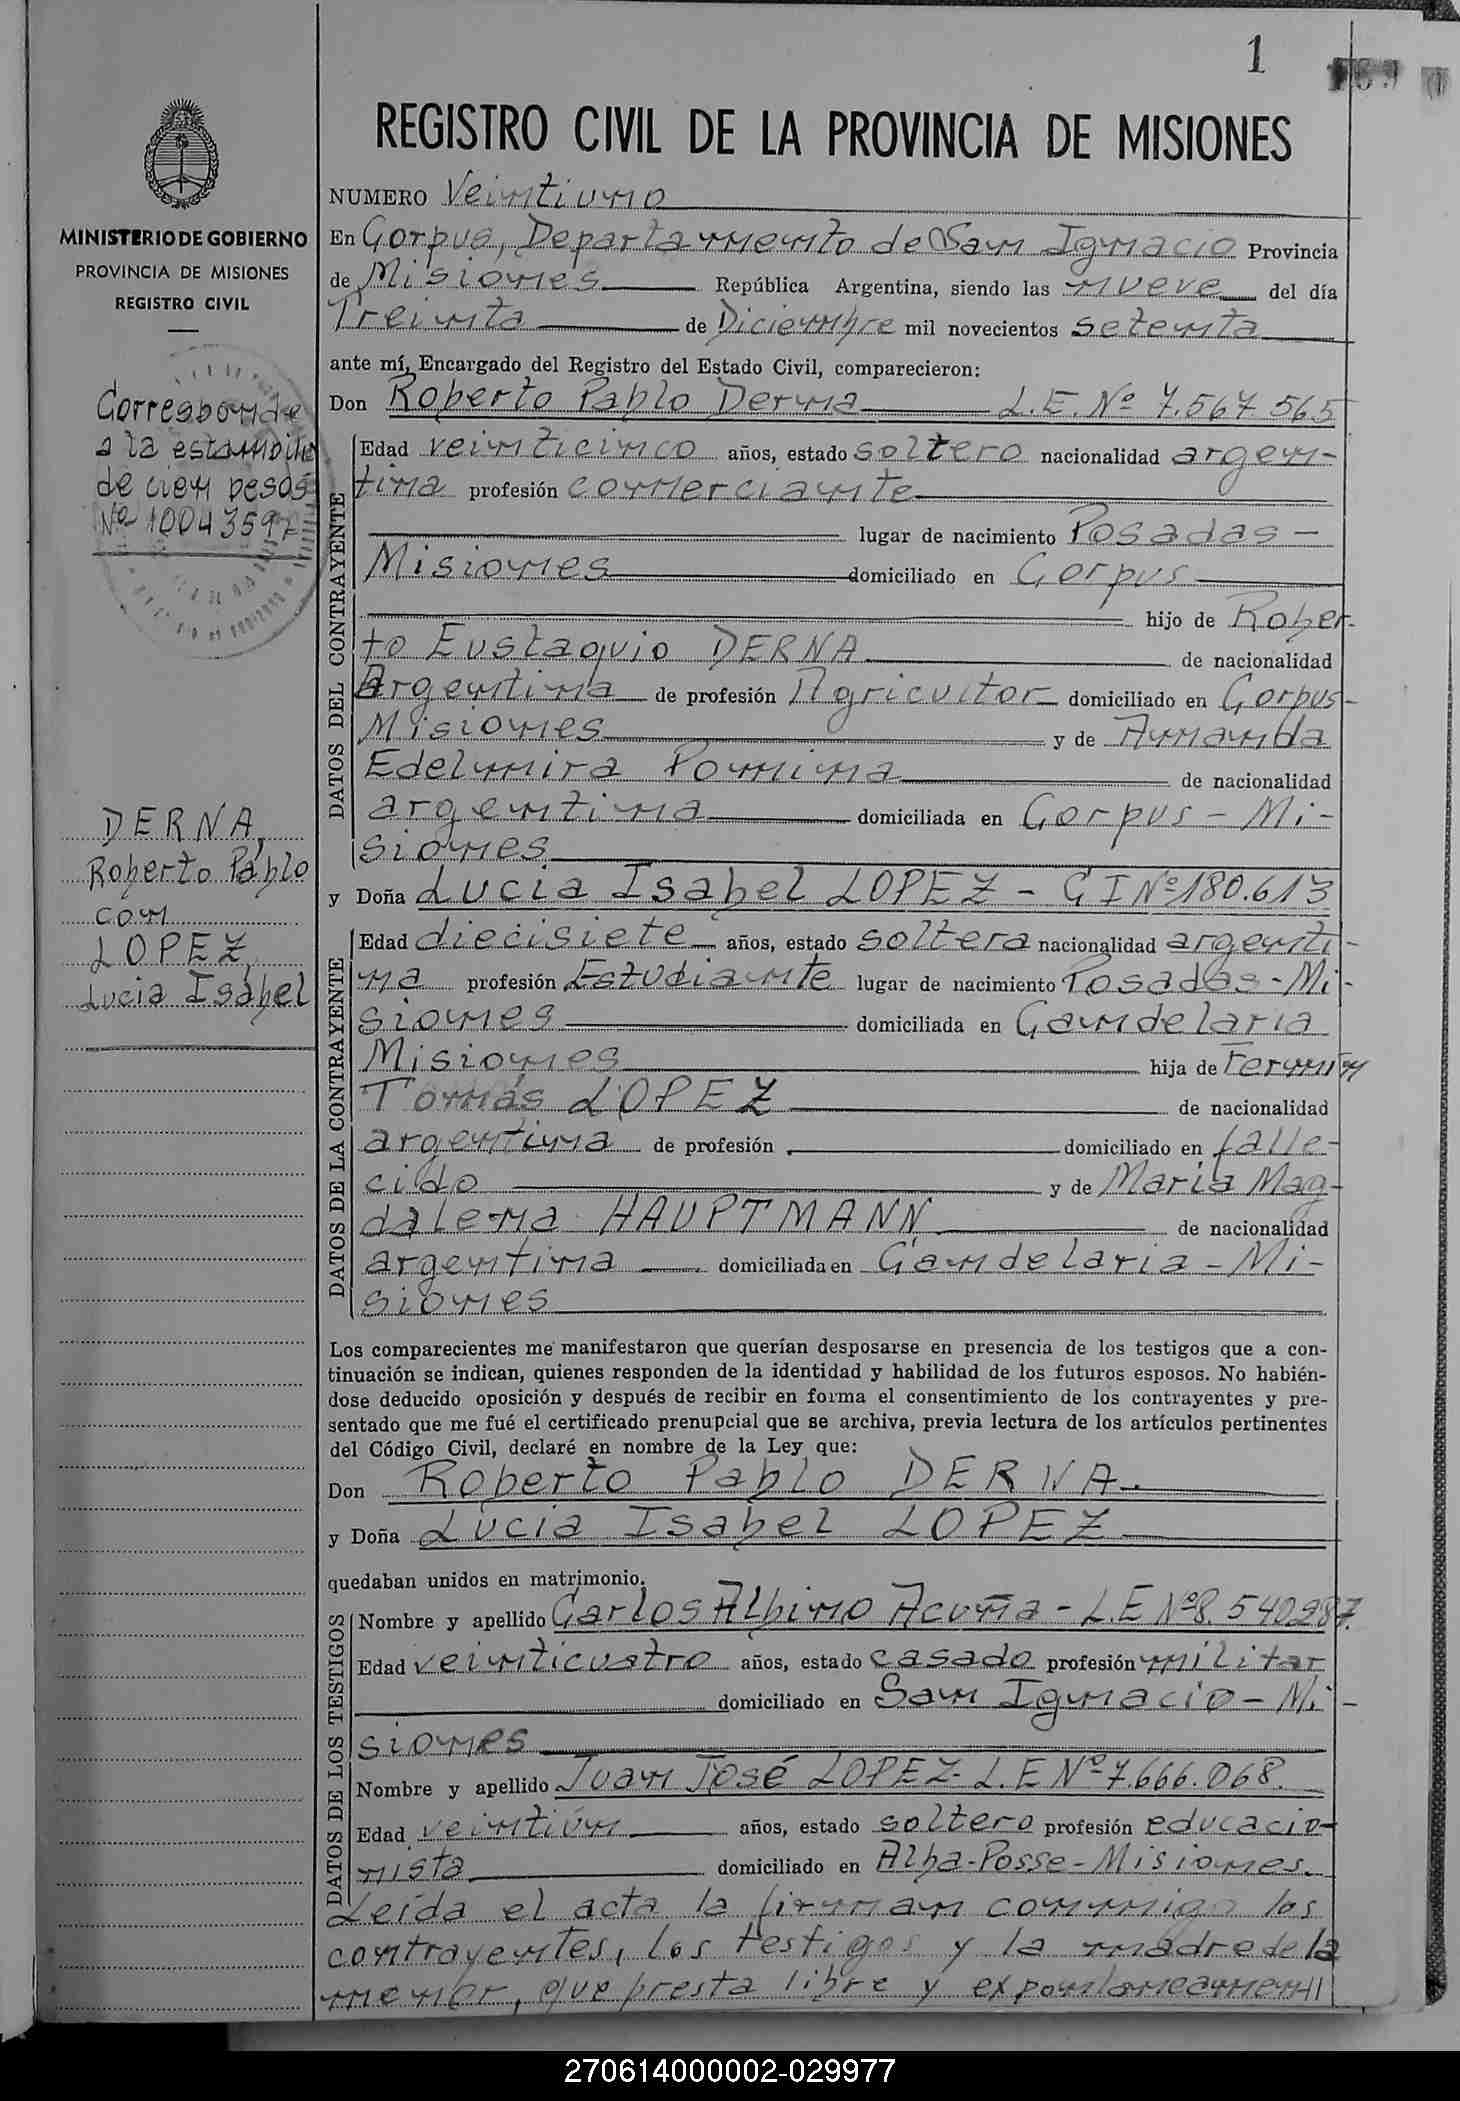 1
REGISTRO CIVIL DE LA PROVINCIA DE MISIONES
MINISTERIO DE GOBIERNO
PROVINCIA DE MISIONES
REGISTRO CIVIL
Corresponde
a la estampilla
de cien pesos
Nº 10043597
DERNA,
Roberto Pablo
con
LOPEZ,
Lucia Isabel
NUMERO Veintiuno
En Corpus, Departamento de San Ignacio Provincia
de Misiones República Argentina, siendo las nueve del día
Treinta de Diciembre mil novecientos setenta
ante mí, Encargado del Registro del Estado Civil, comparecieron:
Don Roberto Pablo Derna L.E. Nº 7.567.565
DATOS DEL CONTRAYENTE
Edad veinticinco años, estado soltero nacionalidad argen-
tina profesión comerciante
lugar de nacimiento Posadas -
Misiones domiciliado en Corpus
hijo de Rober-
to Eustaquio DERNA de nacionalidad
Argentina de profesión Agricultor domiciliado en Corpus-
Misiones y de Amanda
Edelmira Pomina de nacionalidad
argentina domiciliada en Corpus - Mi-
siones
y Doña Lucia Isabel LOPEZ - C I Nº 180.613
DATOS DE LA CONTRAYENTE
Edad diecisiete años, estado soltera nacionalidad argenti-
na profesión Estudiante lugar de nacimiento Posadas - Mi-
siones domiciliada en Candelaria
Misiones hija de Fermin
Tomás LOPEZ de nacionalidad
argentina de profesión domiciliado en falle-
cido y de Maria Mag-
dalena HAUPTMANN de nacionalidad
argentina domiciliada en Candelaria - Mi-
siones
Los comparecientes me manifestaron que querían desposarse en presencia de los testigos que a con-
tinuación se indican, quienes responden de la identidad y habilidad de los futuros esposos. No habién-
dose deducido oposición y después de recibir en forma el consentimiento de los contrayentes y pre-
sentado que me fué el certificado prenupcial que se archiva, previa lectura de los artículos pertinentes
del Código Civil, declaré en nombre de la Ley que:
Don Roberto Pablo DERNA.
y Doña Lucia Isabel LOPEZ
quedaban unidos en matrimonio.
DATOS DE LOS TESTIGOS
Nombre y apellido Carlos Albino Acuña - L.E Nº 8.540287.
Edad veinticuatro años, estado casado profesión militar
domiciliado en San Ignacio - Mi-
siones
Nombre y apellido Juan José LOPEZ- L.E Nº 7.666.068.
Edad veintiún años, estado soltero profesión educacio-
nista domiciliado en Alba-Posse-Misiones.
Leída el acta la firman conmigo los
contrayentes, los testigos y la madre de la
menor, que presta libre y
270614000002-029977